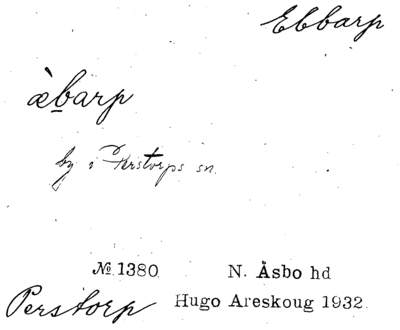 Ebbarp
æ̀b̲arp
by i Perstorps sn.
№ 1380. N. Åsbo hd
Perstorp Hugo Areskoug 1932.